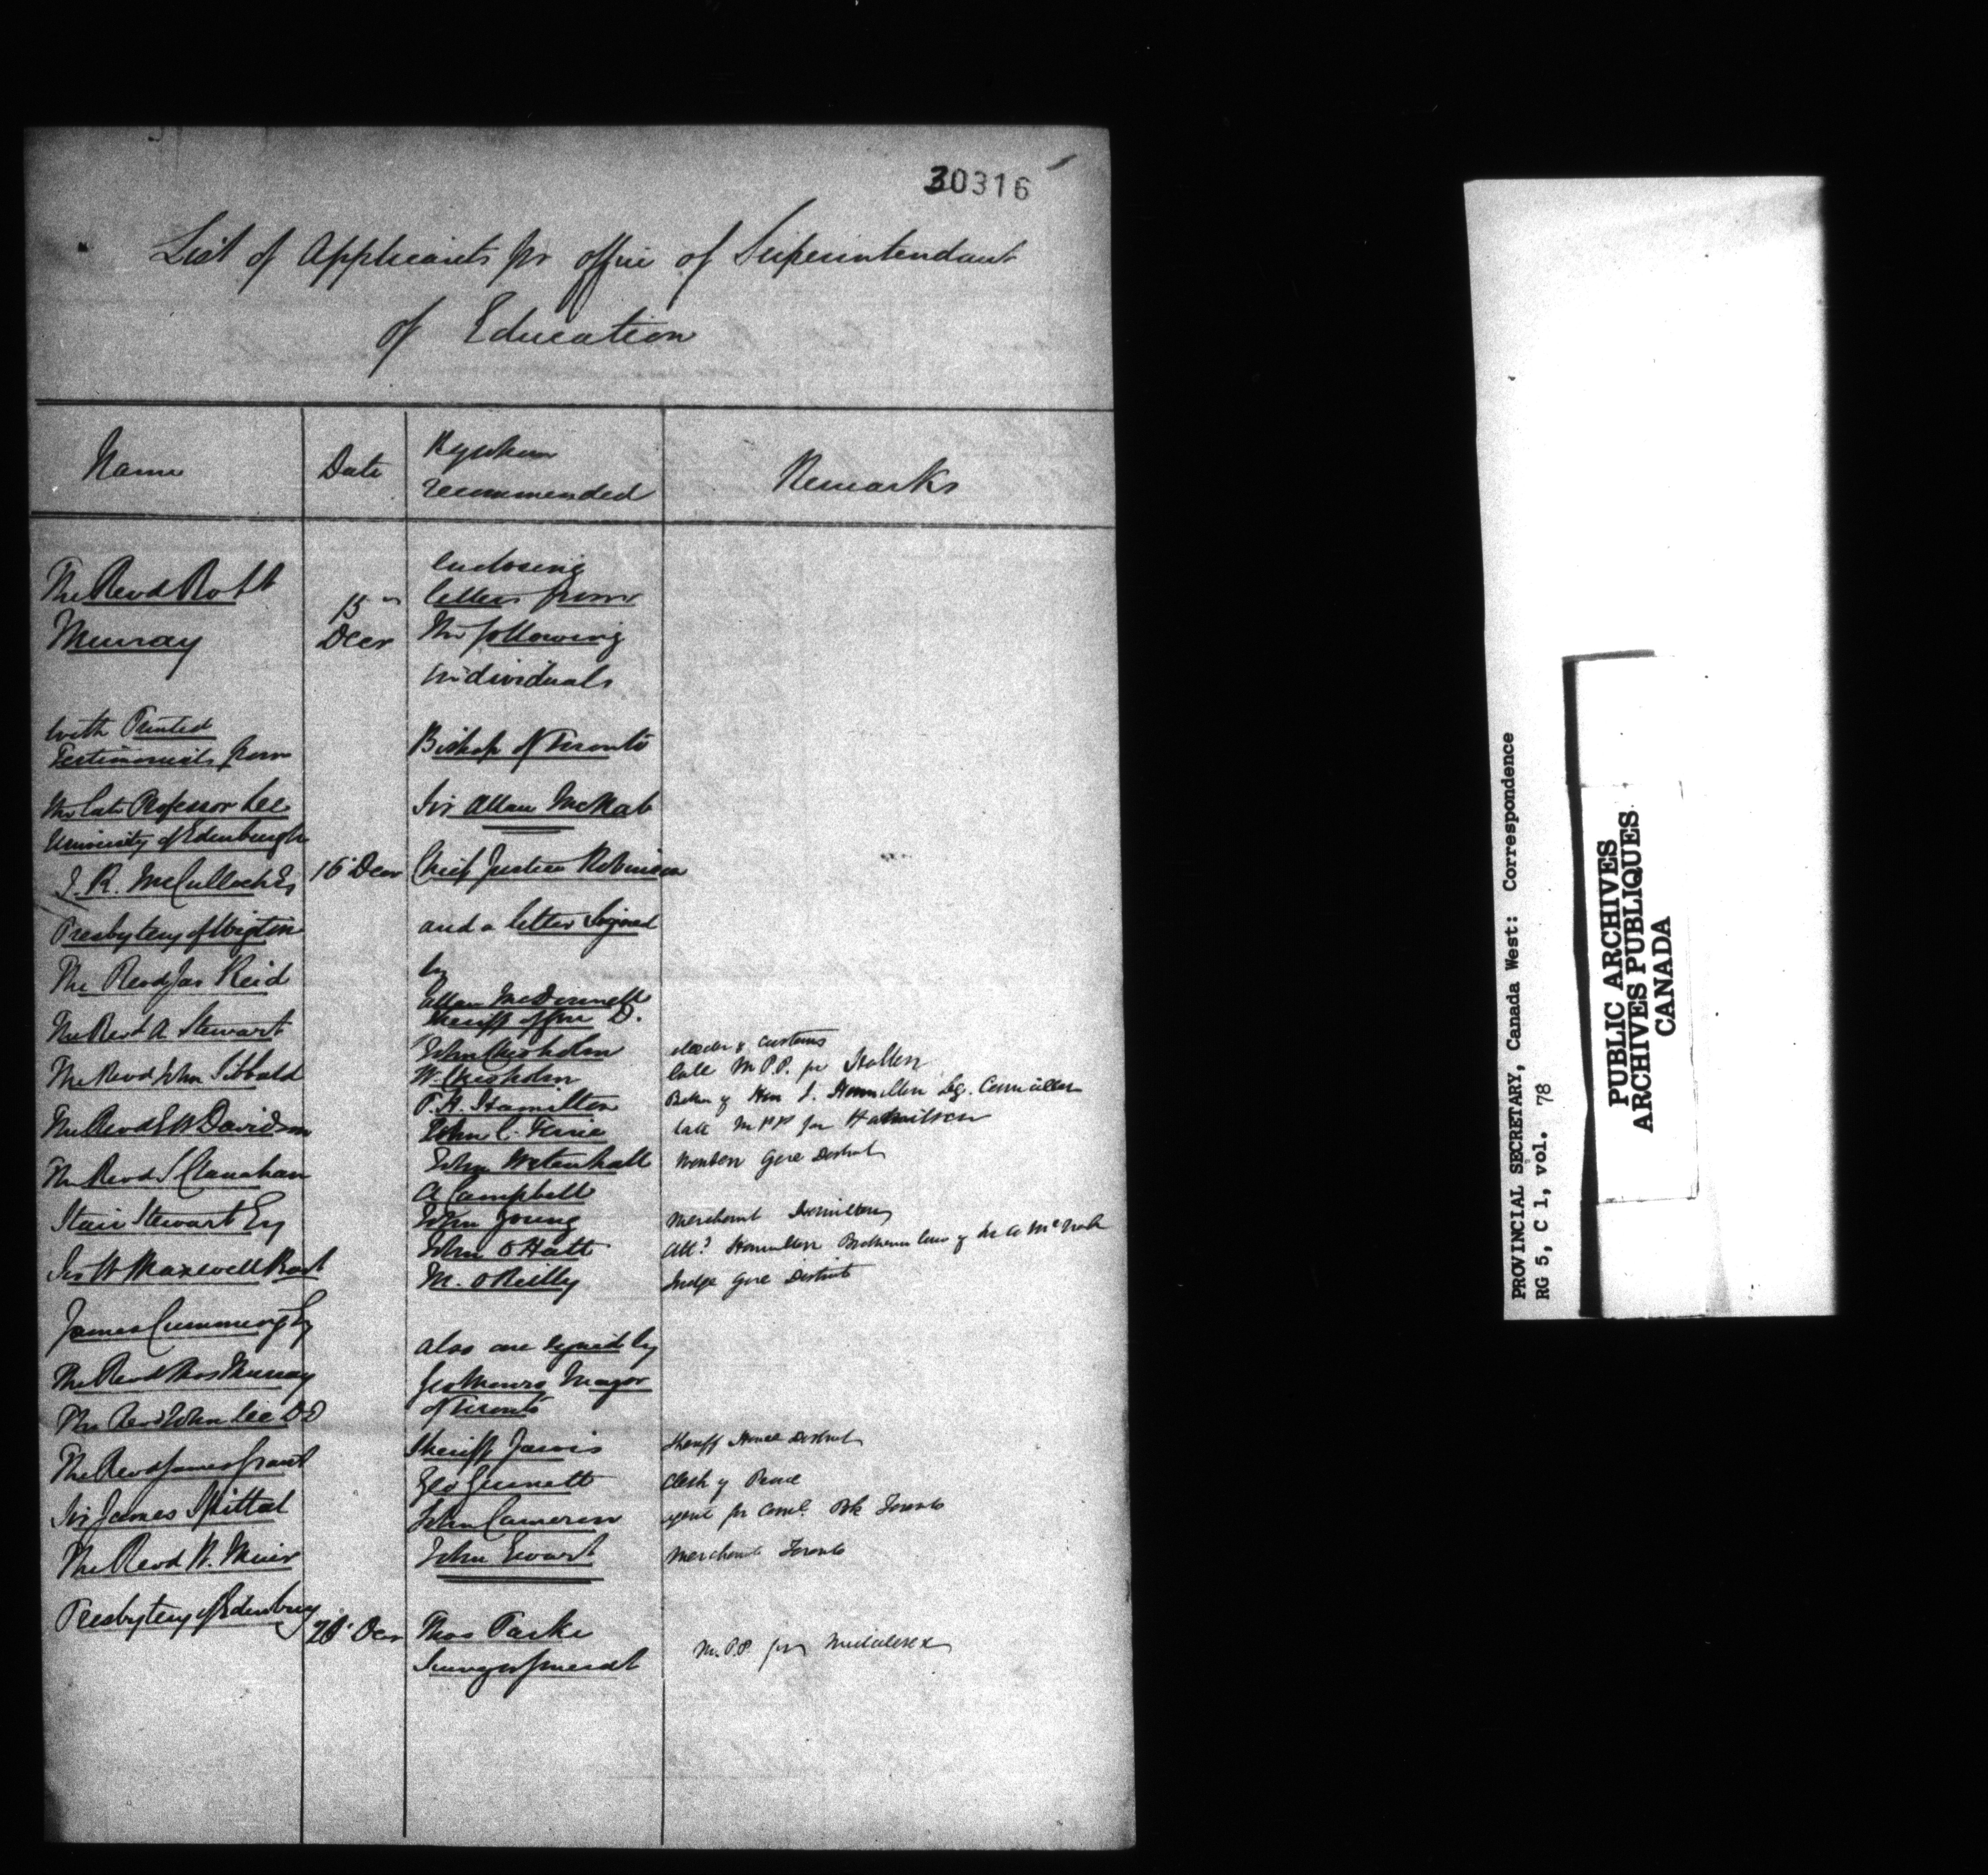 30316
List of Applicants for office of Superintendant
of Education
Name
Date
By whom
recommended
Remarks
The Revd Robt
Murray
15th
Decr
enclosing
letters from
the following
individuals
with Printed
Testimonials from
Bishop of Toronto
the late Professor Lee
University of Edenburgh
Sir Allan McNab
J. R. McCulloch Es
16 Decr
Chief Justice Robinson
Presbytery of Wigton
and a letter signed
The Revd Jas Reid
by
Allan McDonnell
Sheriff of Gore D.
The Revd A Stewart
John Chisholm
W. Chisholm
late M.P.P. for Halton
The Revd John Sibbald
P. H. Hamilton
Brother of Hon J. Hamilton Leg. Councillor
The Revd E W Davidson
John C. Ferrie
late MPP for Hamilton
John Wetenhall
Warden Gore District
The Revd J Clanahan
A Campbell
Stair Stewart Esq
John Young
Merchant Hamilton
John O Hatt
Att? Hamilton Brother in law of Sir A McNab
Sir W Maxwell Bart
M. O Reilly
Judge Gore District
James Cumming Esq
also one signed by
The Revd Thos Murray
Geo Monro Mayor
of Toronto
The Revd John Lee DD
Sheriff Jarvis
Sheriff Home District
The Revd James Grant
Geo Gurnett
Clerk of Peace
Sir James Spittal
John Cameron
agent for Coml. Bk Toronto
The Revd W. Muir
John Ewart
Merchant Toronto
Presbytery of Edenburg
20 Decr
Thos Parke
Surveyor General
M.P.P. for Middlesex
PROVINCIAL SECRETARY, Canada West: Correspondence
RG 5, C 1, vol. 78
PUBLIC ARCHIVES
ARCHIVES PUBLIQUES
CANADA